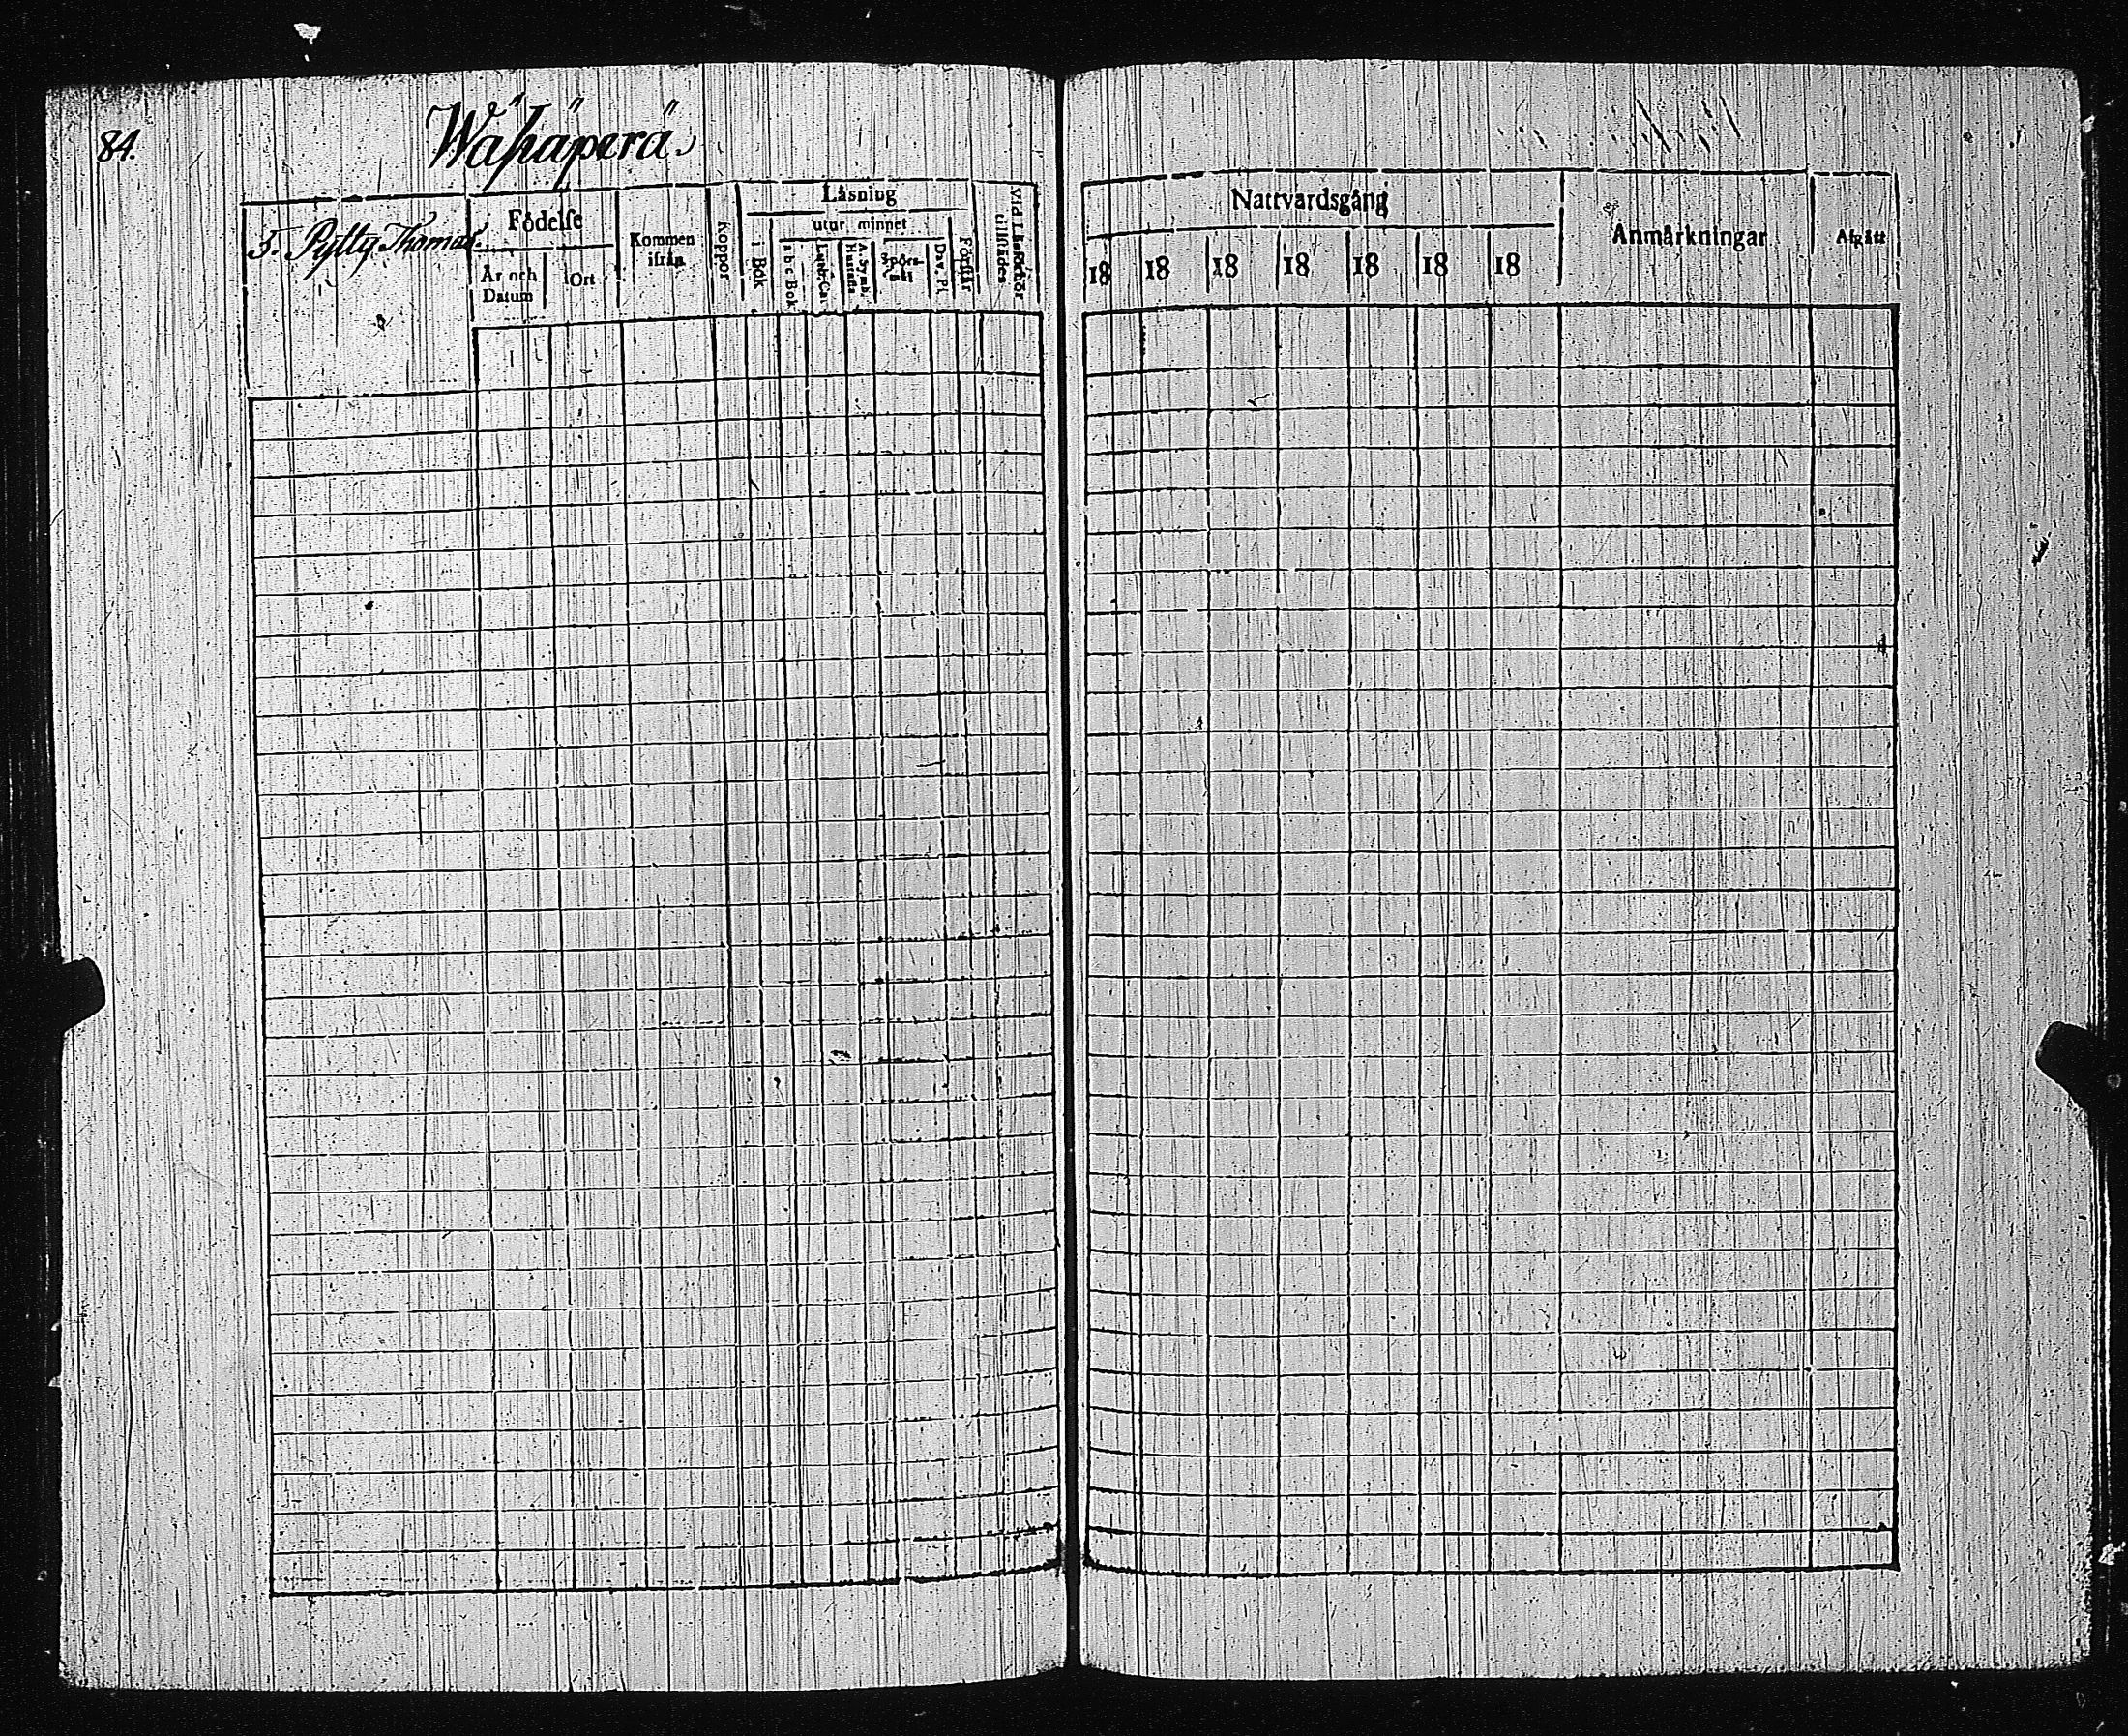 84.
Wähäperä.
5. Pytty Thomas.
Födelse
År och Datum
Ort
Kommen ifrån
Koppor
Läsning
i Bok
utur minnet
a b c Bok
Luth. Cat.
A. Symb.
Hustafla
Spörsmål
Dav. Ps.
Förstår
Vid Läsförhör tillstädes
Nattvardsgång
18 18 18 18 18 18 18
Anmärkningar
Afgått